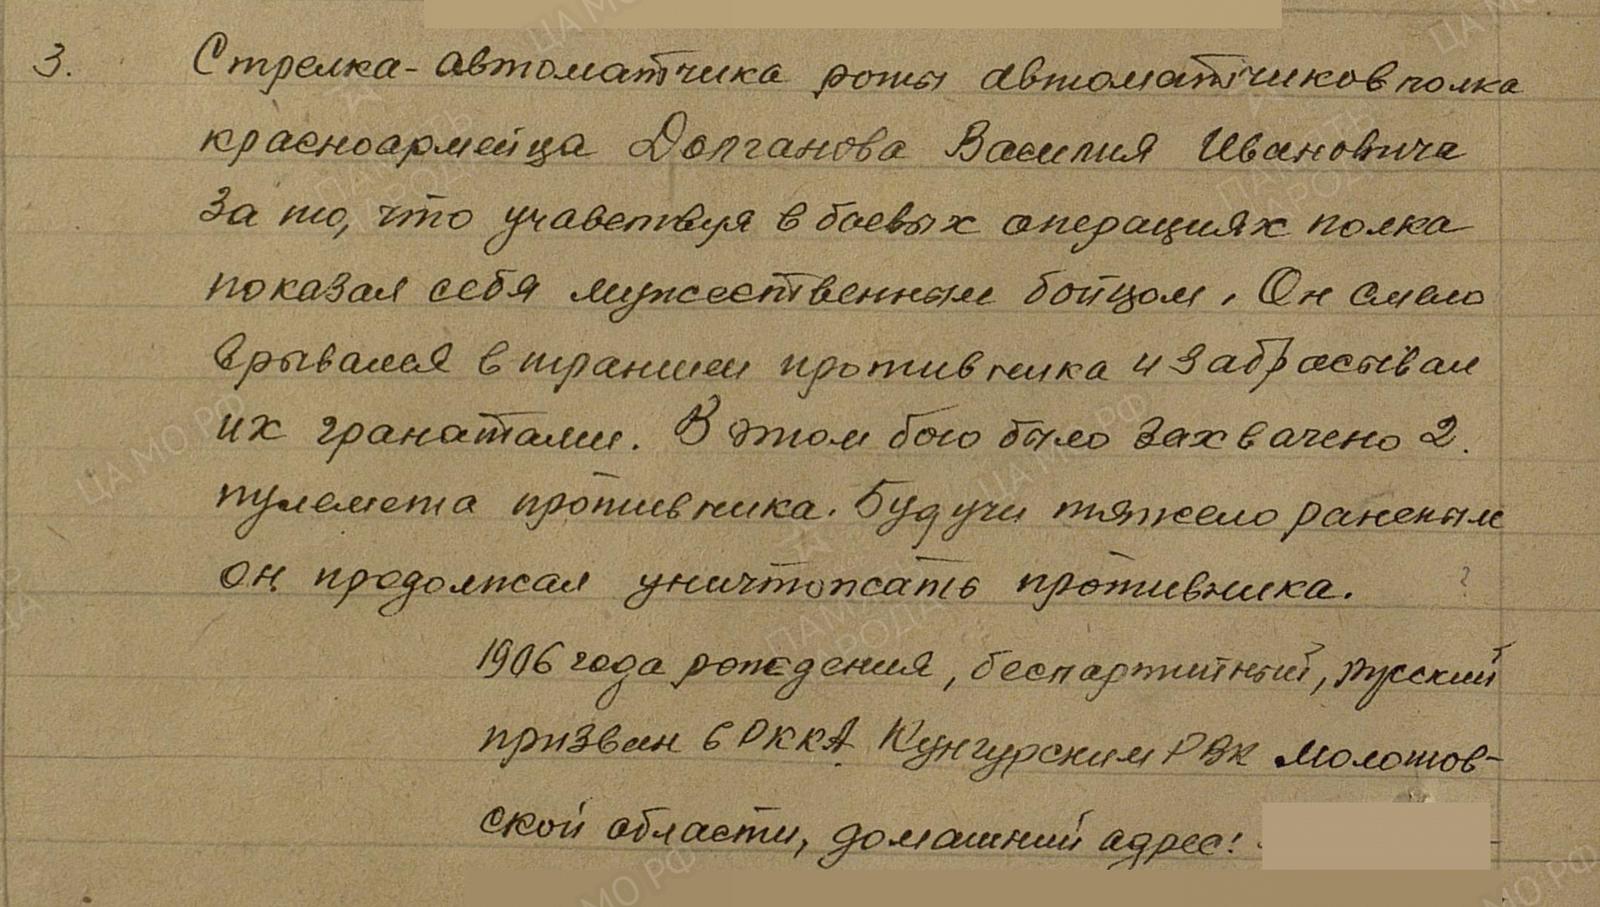 3. Стрелка-автоматчика роты автоматчиков полка
красноармейца Долганова Василия Ивановича
за то, что учавствуя в боевых операциях полка
показал себя мужественным бойцом. Он смело
врывался в траншеи противника и забрасывал
их гранатами. В этом бою было захвачено 2.
пулемета противника. Будучи тяжело раненым
он продолжал уничтожать противника.
1906 года рождения, беспартийный, русский
призван в РККА Кунгурским РВК Молотов-
ской области, домашний адрес: